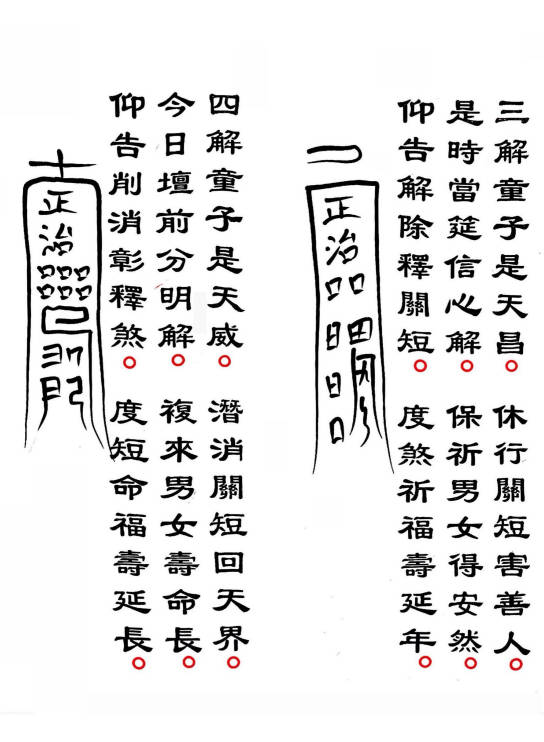 三解童子是天昌。休行關短害善人。
是時當筵信心解。保祈男女得安然。
仰告解除釋關短。度煞祈福壽延年。
正治
四解童子是天威。潛消關短回天界。
今日壇前分明解。複來男女壽命長。
仰告削消彰釋煞。度短命福壽延長。
正治